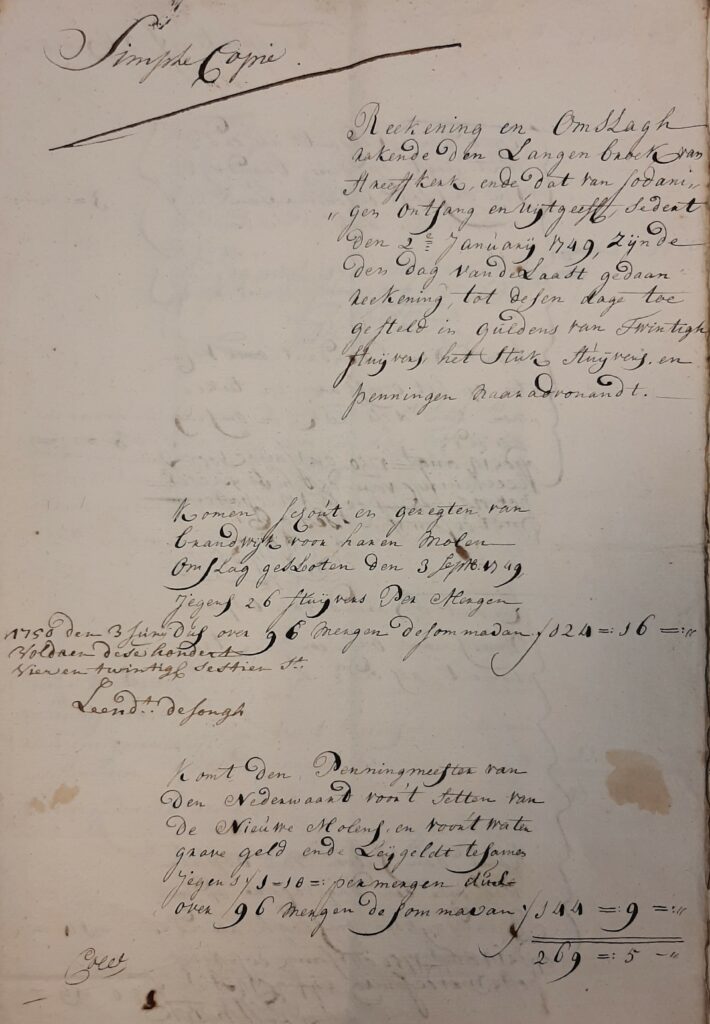 Simple Copie.
Reekening en Omslagh
rakende den Langen broek van
Streeffkerk, ende dat van sodani„
„gen ontfang en uijtgeeff, sedert
den 2e Januarij 1749, Zijnde
den dag van de Laast gedaan
reekening, tot desen dage toe
gesteld in guldens van Twintigh
stuijvers het stuk stuijvers, en
penningen naar advonandt.
Komen schout en geregten van
brandwijk voor haren Molen
Omslag geslooten den 3 Septb. 1749,
Jegens 26 stuijvers Per Mergen
Dus over 96 Mergen de somma van ƒ 124 =: 16 =:„
1750 den 3 Juny
Voldaen dese hondert
Vier en twintigh sestien St.
Leendt. de Jongh
Komt den Penningmeester van
Den Nederwaard voor't setten van
De Nieuwe Molens, en voor't water
grave geld ende Leijgeldt tesamen
Jegens ƒ 1-10 =: per mergen dus
over 96 Mergen de somma van ƒ 144 =: 9 =:„
269 =: 5 -„